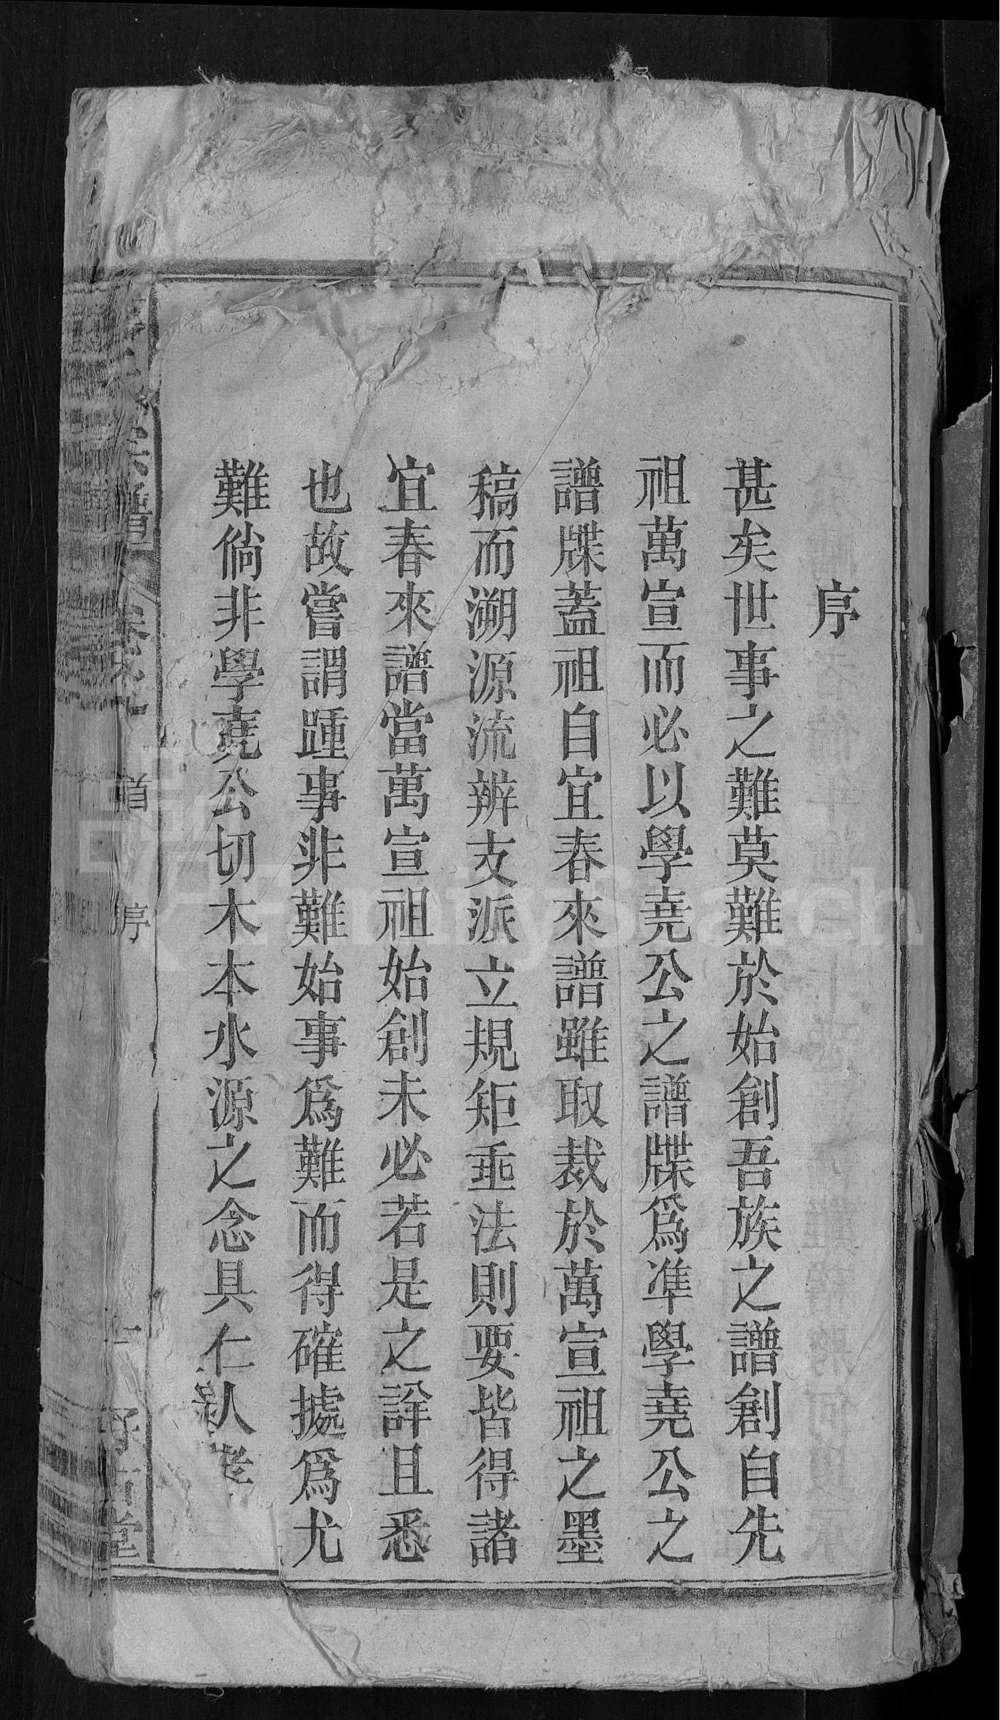 序
甚矣世事之難莫難於始創吾族之譜創自先
祖萬宣而必以學堯公之譜牒爲準學堯公之
譜牒蓋祖自宜春來譜雖取裁於萬宣祖之墨
稿而溯源流辨支派立規矩垂法則要皆得諸
宜春來譜當萬宣祖始創未必若是之詳且悉
也故嘗謂踵事非難始事爲難而得確據爲尤
難倘非學堯公切木本水源之念具仁人孝
宗譜
首
序
堂
FamilySearch